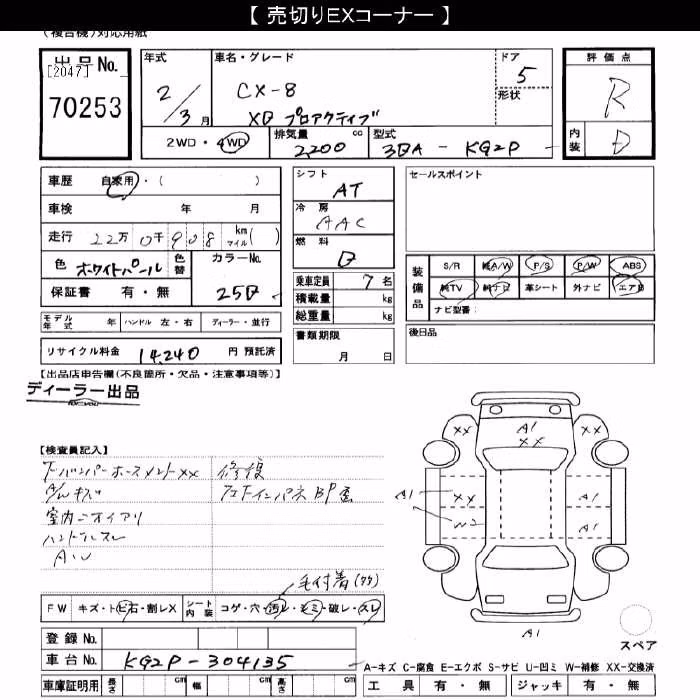 【 売切りEXコーナー 】
(複合機)対応用紙
出品No.
[2047]
70253
年式
2/3月
車名・グレード
CX-8
XD プロアクティブ
ドア
5
形状
評価点
R
内装
D
2WD・4WD
排気量
2,200
cc
型式
3DA - KG2P
車歴 自家用・( )
車検 年 月
走行 22万 0千 908 km マイル( )
色 ホワイトパール
色替
カラーNo.
25D
保証書 有・無
シフト
AT
冷房
AAC
燃料
D
乗車定員 7 名
積載量 kg
総重量 kg
書類期限
月 日
セールスポイント
装備品
S/R 純A/W P/S P/W ABS
純TV 純ナビ 革シート 外ナビ エアB
ナビ型番:
後日品
モデル年式 年 ハンドル 左・右 ディーラー・並行
リサイクル料金 14,240 円 預託済
【出品店申告欄(不良箇所・欠品・注意事項等)】
ディーラー出品
【検査員記入】
修復
A/W キズ
室内ニオイアリ
ハンドルスレ
毛付着(クク)
FW キズ・トビ石・割レX
シート内装 コゲ・穴・汚レ・シミ・破レ・スレ
登録No.
車台No. KG2P-304135
車庫証明用 長さ cm 幅 cm 高さ cm
A1
XX
XX
XX
A1
XX
W2
A1
A1
A1
スペア
A-キズ C-腐食 E-エクボ S-サビ U-凹ミ W-補修 XX-交換済
工具 有・無 ジャッキ 有・無